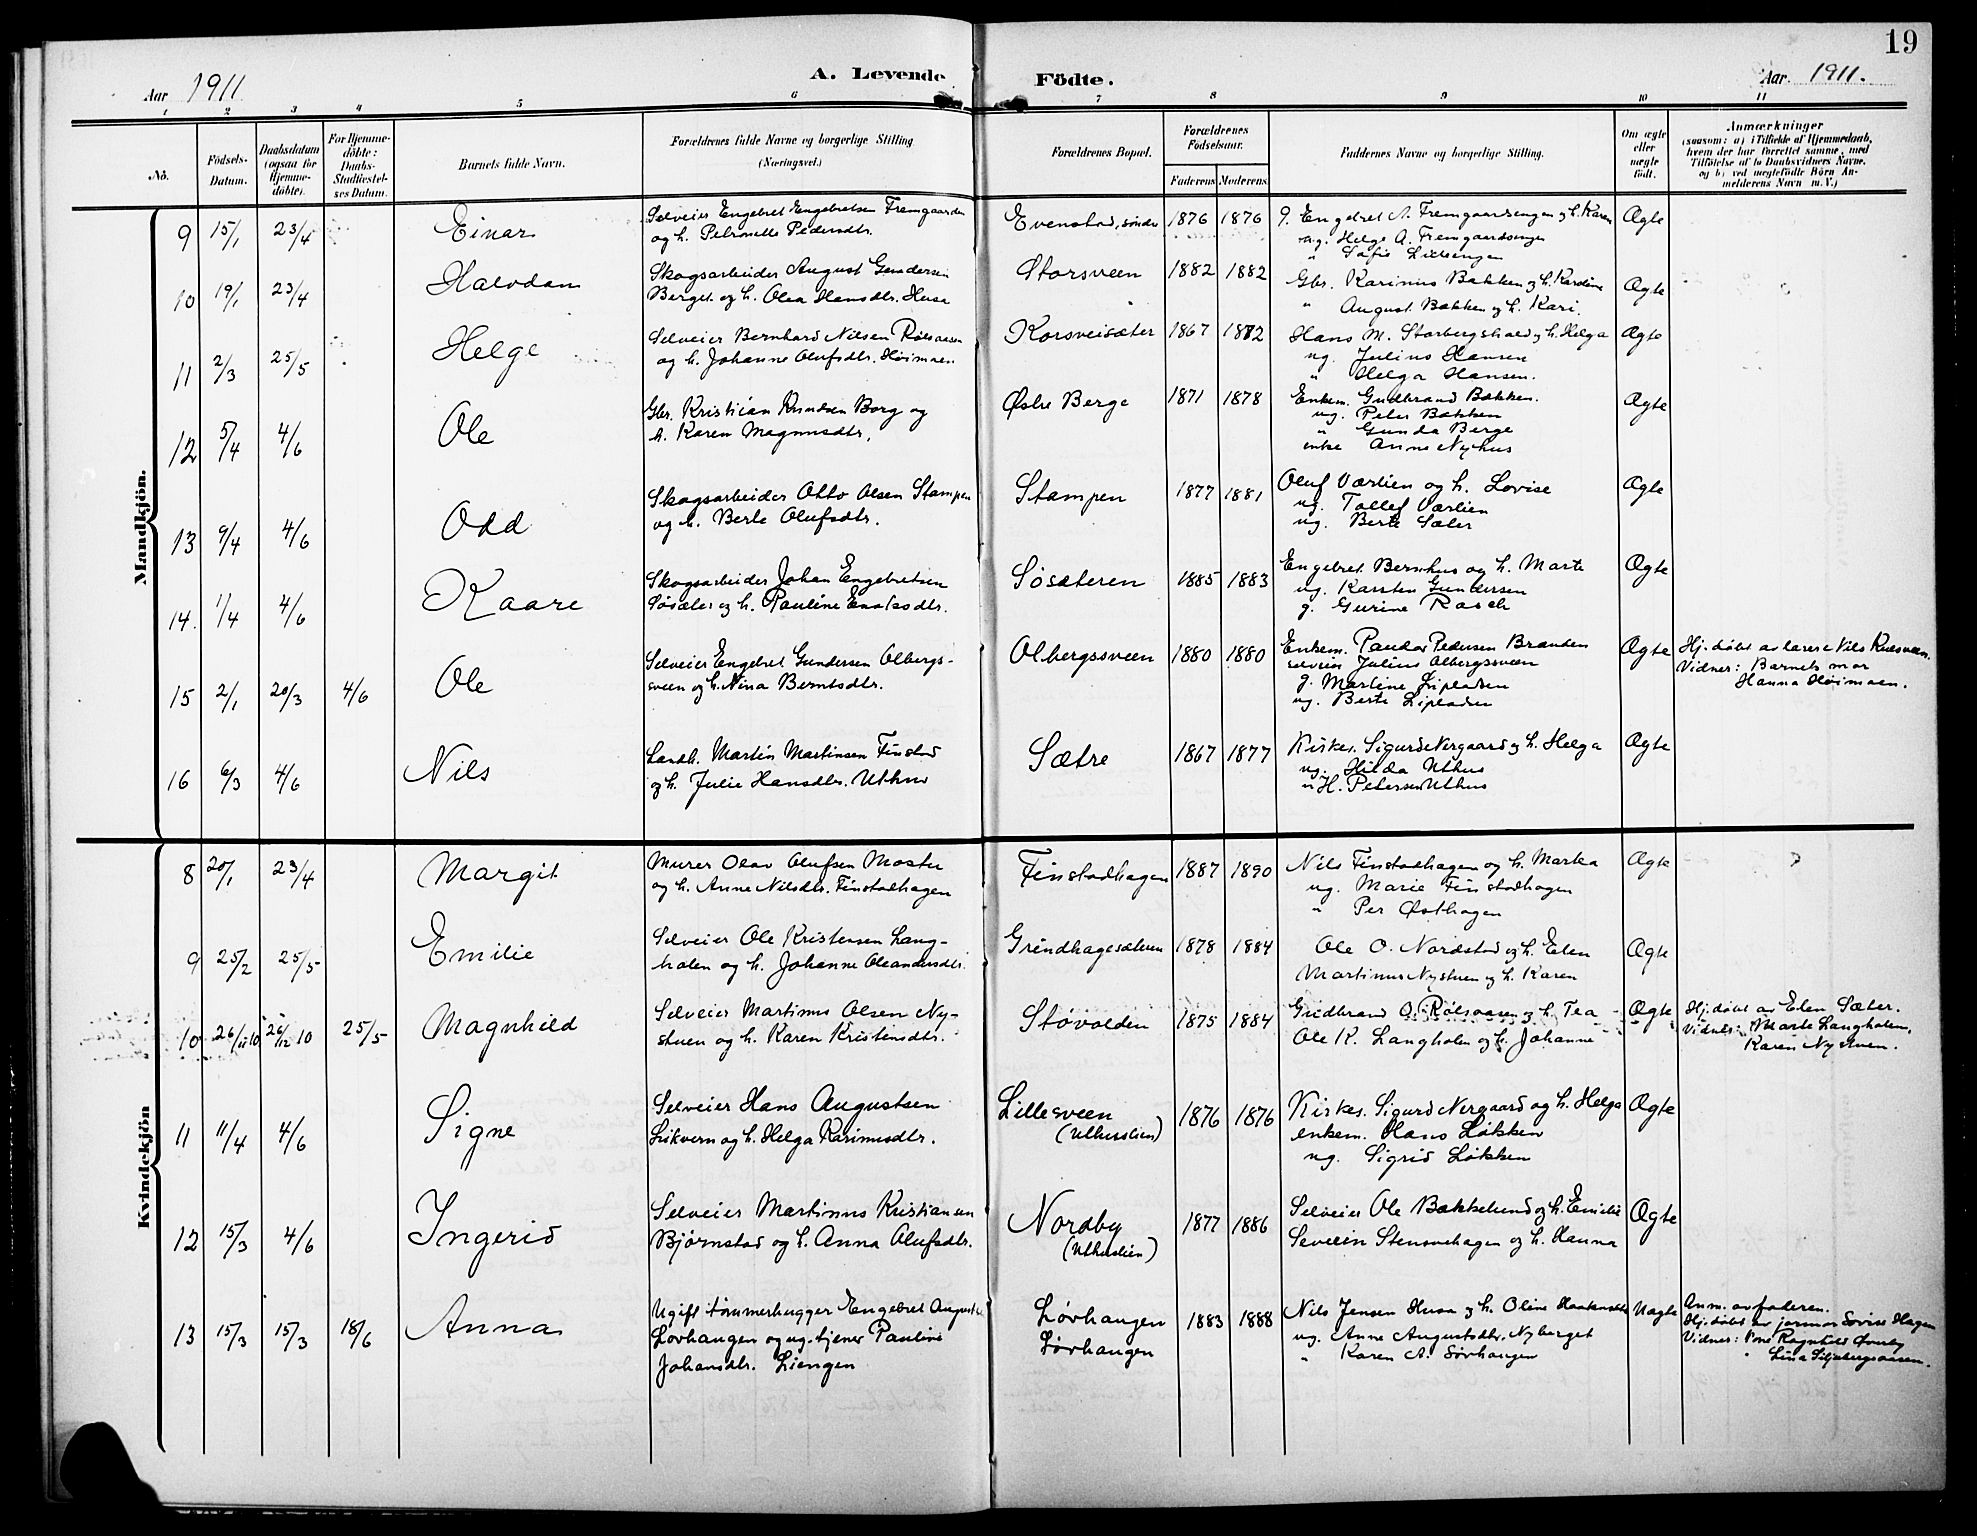 19
Aar 1911
A. Levende Födte.
Aar. 1911.
1 2 3 4 5 6 7 8 9 10 11
No.
Födsels-
Datum.
Daabsdatum
(ogsaa for
Hjemme-
döbte).
For Hjemme-
döbte:
Daabs-
Stadfæstel-
ses Datum.
Barnets fulde Navn.
Forældrenes fulde Navne og borgerlige Stilling
(Næringsvei.)
Forældrenes Bopæl.
Forældrenes
Födselsaar.
Faderens Moderens
Faddernes Navne og borgerlige Stilling.
Om ægte
eller
uægte
födt.
Anmærkninger
(saasom: a) i Tilfælde af Hjemmedaab,
hvem der har forrettet samme, med
Tilföielse af to Daabsvidners Navne,
og b) ved uægtefödte Börn An-
melderens Navn m. V.)
Mandkjön.
9 15/1 23/4 Einar
Selveier Engebret Engebretsen Fremgaarden
og h. Petronelle Pedersdtr.
Evenstad, søndre 1876 1876
g. Engebret A. Fremgaardsengen og h. Karen
ug. Helge A. Fremgaardsengen
" Sofie
Ægte
10 19/1 23/4 Halvdan
Skogsarbeider August Gundersen
Berget og h. Olea Hansdtr. Husa
Storsveen 1882 1882
Gbr. Karinus Bakken og h. Kardine
" August Bakken og h. Kari.
Ægte
11 2/3 25/5 Helge
Selveier Bernhard Nilsen Rølsaasen
og h. Johanne Olufsdtr. Høimoen
Korsveisæter 1867 1872
Hans M. Storbergshald og h. Helga
ug. Julius Hansen
" Helga Hansen.
Ægte
12 5/4 4/6 Ole
Gbr. Kristian Knudsen Borg og
h. Karen Magnusdtr.
Østre Berge 1871 1878
Enkem. Gudbrand Bækken.
ug. Peter Bækken
" Gunda Berge
enke Anne Nyhus
Ægte
13 9/4 4/6 Odd
Skogsarbeider Otto Olsen Stampen
og h. Berte Olufsdtr.
Stampen 1877 1881
Oluf Værlien og h. Lovise
ug. Tollef Værlien
ug. Berte Sæter
Ægte
14. 1/4 4/6 Kaare
Skogsarbeider Johan Engebretsen
Søsæter og h. Pauline Enoksdtr.
Søsæteren 1885 1883
Engebret Bernhus og h. Marte
ug. Karsten Gundersen
g. Gurine Rasch
Ægte
15 2/1 20/3 4/6 Ole
Selveier Engebret Gundersen Olbergs-
sveen og h. Nina Berntsdtr.
Olbergssveen 1880 1880
Enkem. Peder Pedersen Brænden
selveier Julius Olbergssveen
g. Martine Sjipladsen
ug. Berte Sjipladsen
Ægte
Hj. døbt av lærer Nils Kvilsveen.
Vidner: Barnets mor
Hanna Høimoen.
16 6/3 4/6 Nils
Landh. Martin Martinsen Finstad
og h. Julie Hansdtr. Uthus
Sætre 1867 1877
Kirkes. Sigurd Nergaard og h. Helga
ug. Hilda Uthus
" H. Petersen Uthus
Ægte
Kvindekjön
8 20/1 23/4 Margit
Murer Olav Olufsen Mostu
og h. Anne Nilsdtr. Finstadhagen
Finstadhagen 1887 1890
Nils Finstadhagen og h. Martea
ug. Marie Finstadhagen
" Per Østhagen
Ægte
9 25/2 25/5 Emilie
Selveier Ole Kristensen Lang-
holen og h. Johanne Oleandersdtr.
Grindhagesæteren 1878 1884
Ole O. Nordstad og h. Elen
Martinus Nystuen og h. Karen
Ægte
10 26/11 10 26/12 10 25/5 Magnhild
Selveier Martinus Olsen Ny-
stuen og h. Karen Kristensdtr.
Støvolden 1875 1884
Gudbrand O. Rølsaasen og h. Tea
Ole K. Langholen og h. Johanne
Ægte
Hj. døbt av Elen Sæter.
Vidner: Marte Langholen,
Karen Nystuen.
11 11/4 4/6 Signe
Selveier Hans Augustsen
Likvern og h. Helga Karinusdtr.
Lillesveen
(Uthuslien)
1876 1876
Kirkes. Sigurd Nergaard og h. Helga
enkem. Hans Løkken
ug. Sigrid Løkken
Ægte
12 15/3 4/6 Ingerid
Selveier Martinus Kristiansen
Bjørnstad og h. Anna Olufsdtr.
Nordby
(Uthuslien)
1877 1886
Selveier Ole Bakkelund og h. Emilie
Severin Stensvehagen og h. Hanna
Ægte
13 15/3 15/3 18/6 Anna
Ugift tømmerhugger Engebret August
Løvhaugen og ug. tjener Pauline
Johansdtr. Liengen
Løvhaugen
Løvhaugen
1883 1888
Nils Jensen Husa og h. Oline Haakensdtr
ug. Anne Augustsdtr. Nyberget
" Karen A. Løvhaugen
Uægte
Anm. av faderen.
Hj. døbt av jormor Lovise Hagen
Vidner: Fru Ragnhild Øvreby
" Lina Siljebergsaasen.